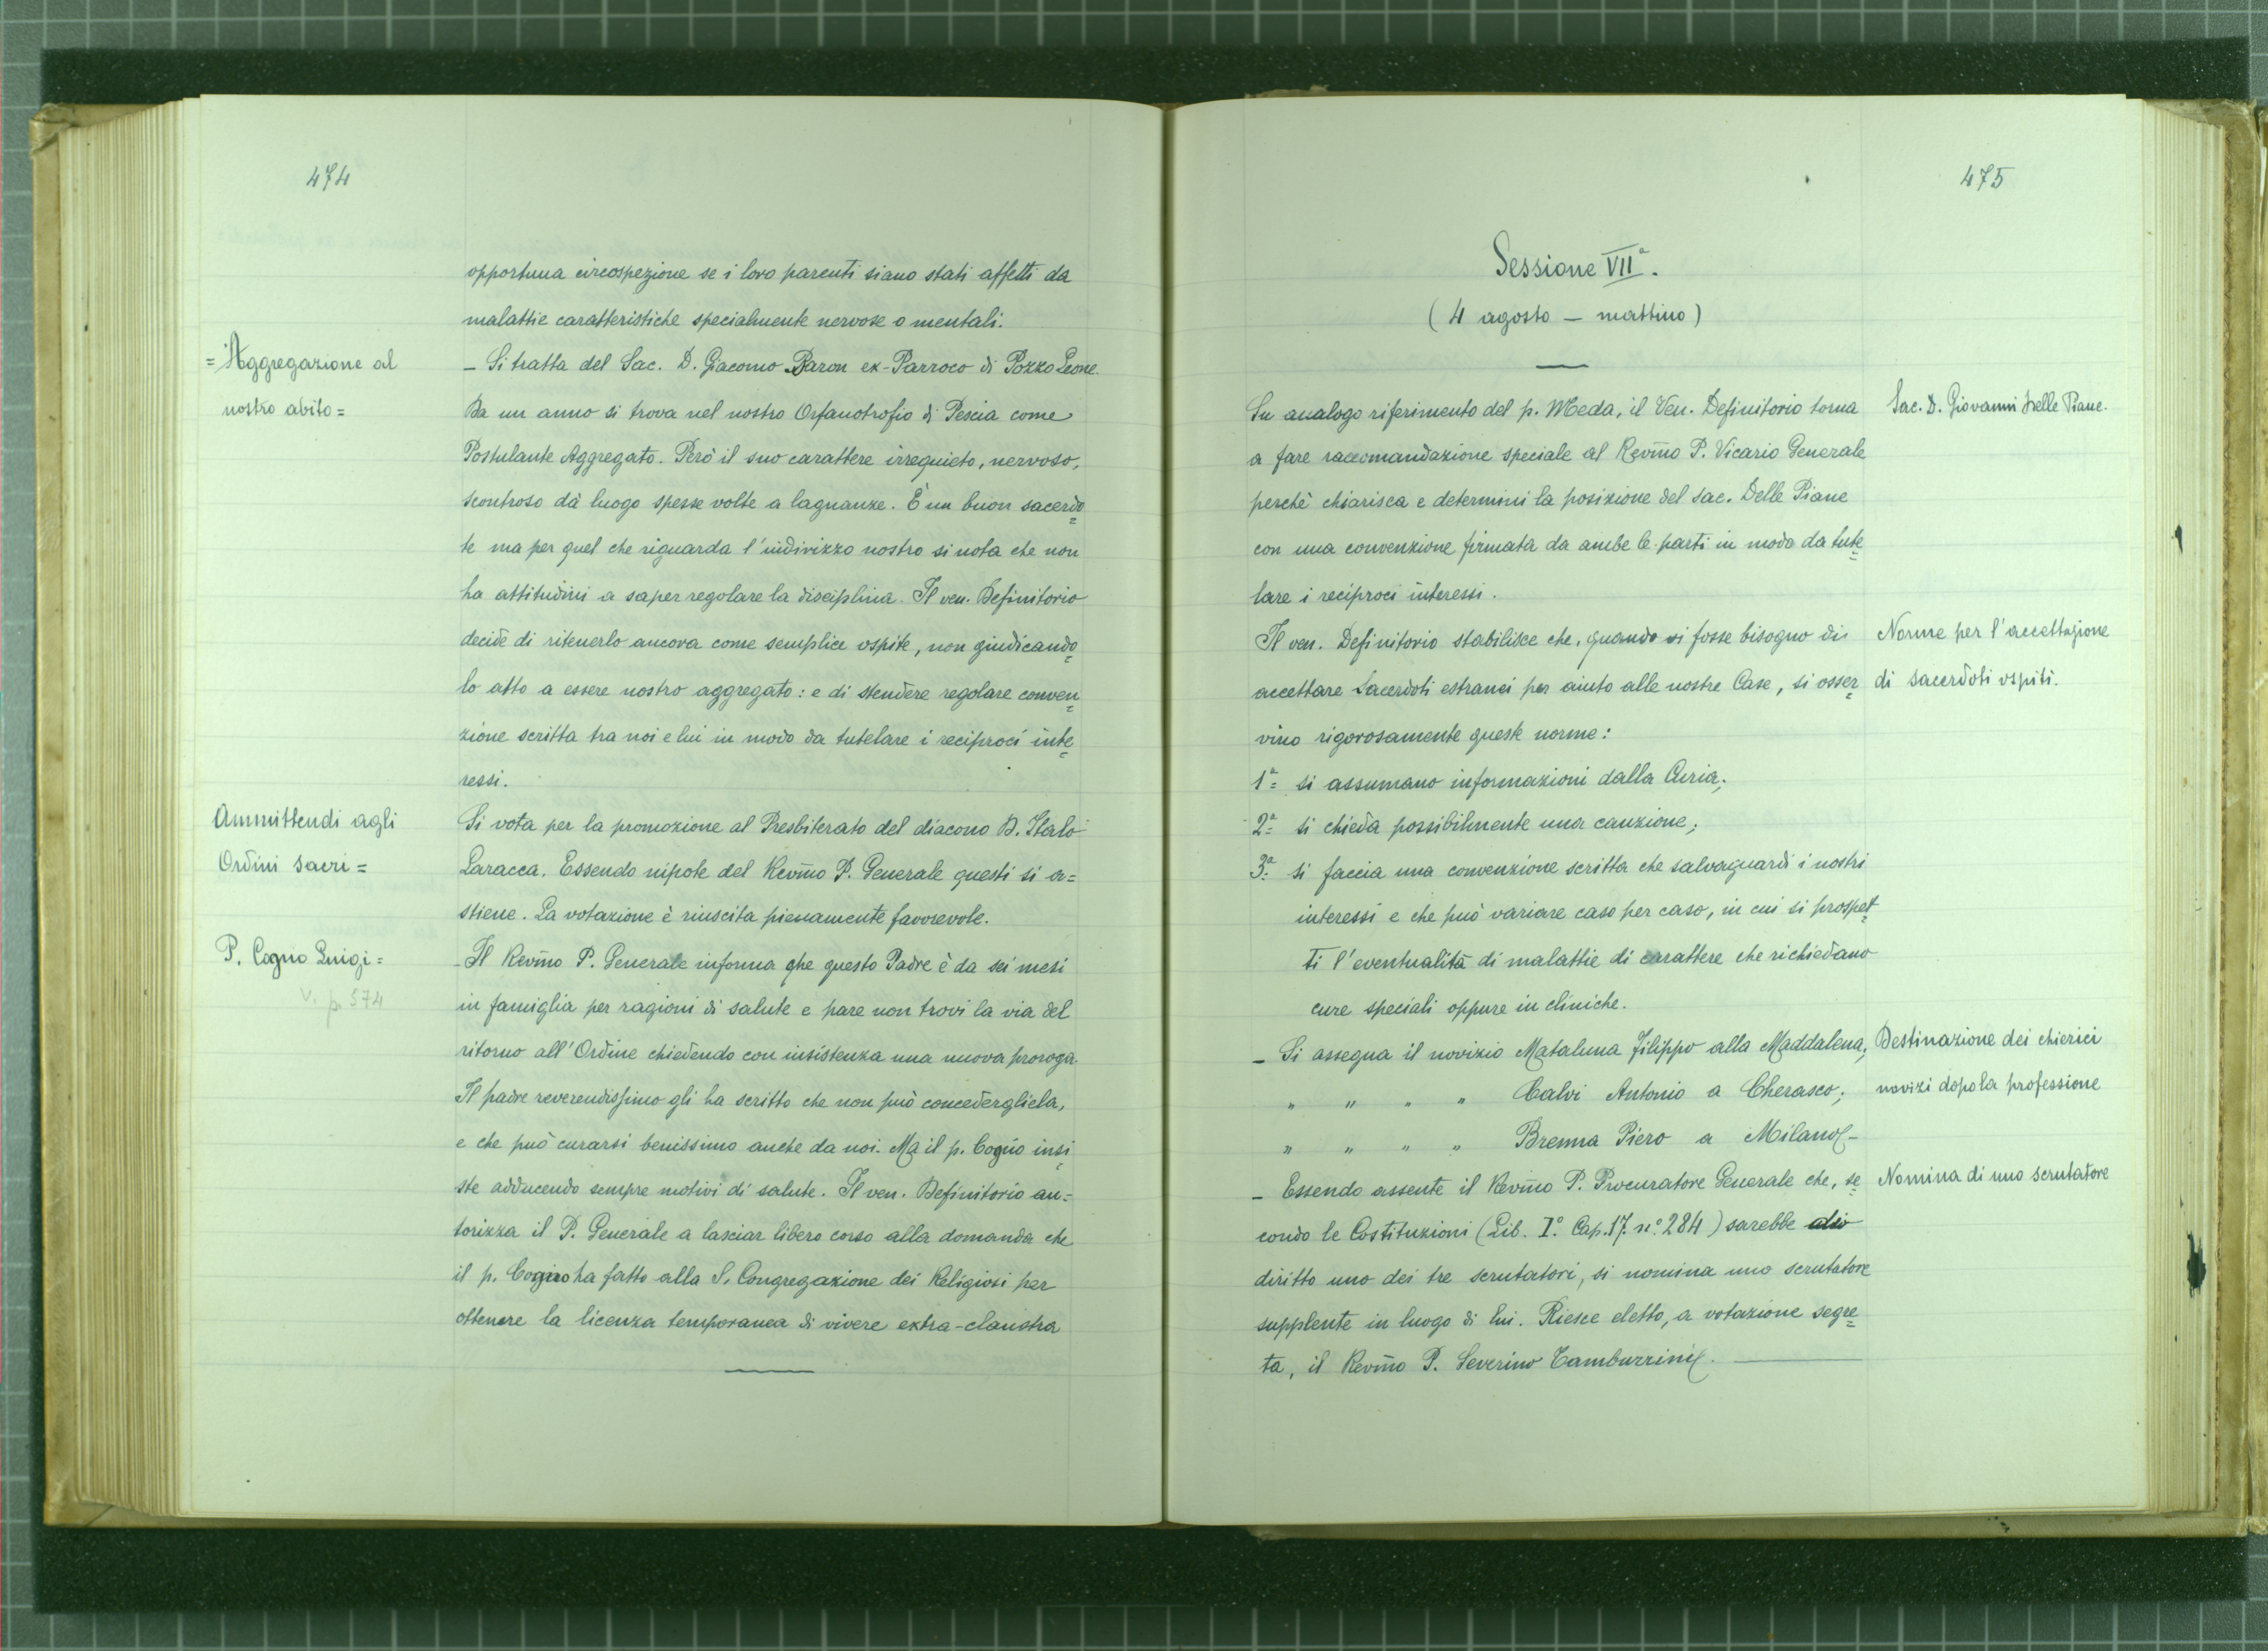 474
opportuna circospezione se i loro parenti siano stati affetti da
malattie caratteristiche specialmente nervose o mentali.
= Aggregazione al
nostro abito =
– Si tratta del Sac. D. Giacomo Baron ex-Parroco di Pozzo Leone.
Da un anno si trova nel nostro Orfanotrofio di Pescia come
Postulante Aggregato. Però il suo carattere irrequieto, nervoso,
scontroso dà luogo spesse volte a lagnanze. È un buon sacerdo=
te ma per quel che riguarda l'indirizzo nostro si nota che non
ha attitudini a saper regolare la disciplina. Il ven. Definitorio
decide di ritenerlo ancora come semplice ospite, non giudicando=
lo atto a essere nostro aggregato: e di stendere regolare conven=
zione scritta tra noi e lui in modo da tutelare i reciproci inte=
ressi.
Ammittendi agli
Ordini sacri =
Si vota per la promozione al Presbiterato del diacono D. Italo
Laracca. Essendo nipote del Rev̄mo P. Generale questi si a=
stiene. La votazione è riuscita pienamente favorevole.
P. Cogno Luigi =
V. p. 574
– Il Rev̄mo P. Generale informa che questo Padre è da sei mesi
in famiglia per ragioni di salute e pare non trovi la via del
ritorno all'Ordine chiedendo con insistenza una nuova proroga.
Il padre reverendissimo gli ha scritto che non può concedergliela,
e che può curarsi benissimo anche da noi. Ma il p. Cogno insi=
ste adducendo sempre motivi di salute. Il ven. Definitorio au=
torizza il P. Generale a lasciar libero corso alla domanda che
il p. Cogno ha fatto alla S. Congregazione dei Religiosi per
ottenere la licenza temporanea di vivere extra-claustra
475
Sessione VIIª.
( 4 agosto – mattino )
Sac. D. Giovanni Delle Piane.
Su analogo riferimento del p. Meda, il Ven. Definitorio torna
a fare raccomandazione speciale al Rev̄mo P. Vicario Generale
perchè chiarisca e determini la posizione del sac. Delle Piane
con una convenzione firmata da ambe le parti in modo da tute=
lare i reciproci interessi.
Norme per l'accettazione
di sacerdoti ospiti.
Il ven. Definitorio stabilisce che, quando vi fosse bisogno di
accettare Sacerdoti estranei per aiuto alle nostre Case, si osser=
vino rigorosamente queste norme:
1ª= si assumano informazioni dalla Curia;
2ª= si chieda possibilmente una cauzione;
3ª= si faccia una convenzione scritta che salvaguardi i nostri
interessi e che può variare caso per caso, in cui si prospet=
ti l'eventualità di malattie di carattere che richiedano
cure speciali oppure in cliniche.
Destinazione dei chierici
novizi dopo la professione
– Si assegna il novizio Mataluna Filippo alla Maddalena;
" " " " Calvi Antonio a Cherasco;
" " " " Brenna Piero a Milano –
Nomina di uno scrutatore
– Essendo assente il Rev̄mo P. Procuratore Generale che, se=
condo le Costituzioni (Lib. I.º Cap. 17. n.º 284) sarebbe
diritto uno dei tre scrutatori, si nomina uno scrutatore
supplente in luogo di lui. Riesce eletto, a votazione segre=
ta, il Rev̄mo P. Severino Tamburrini.